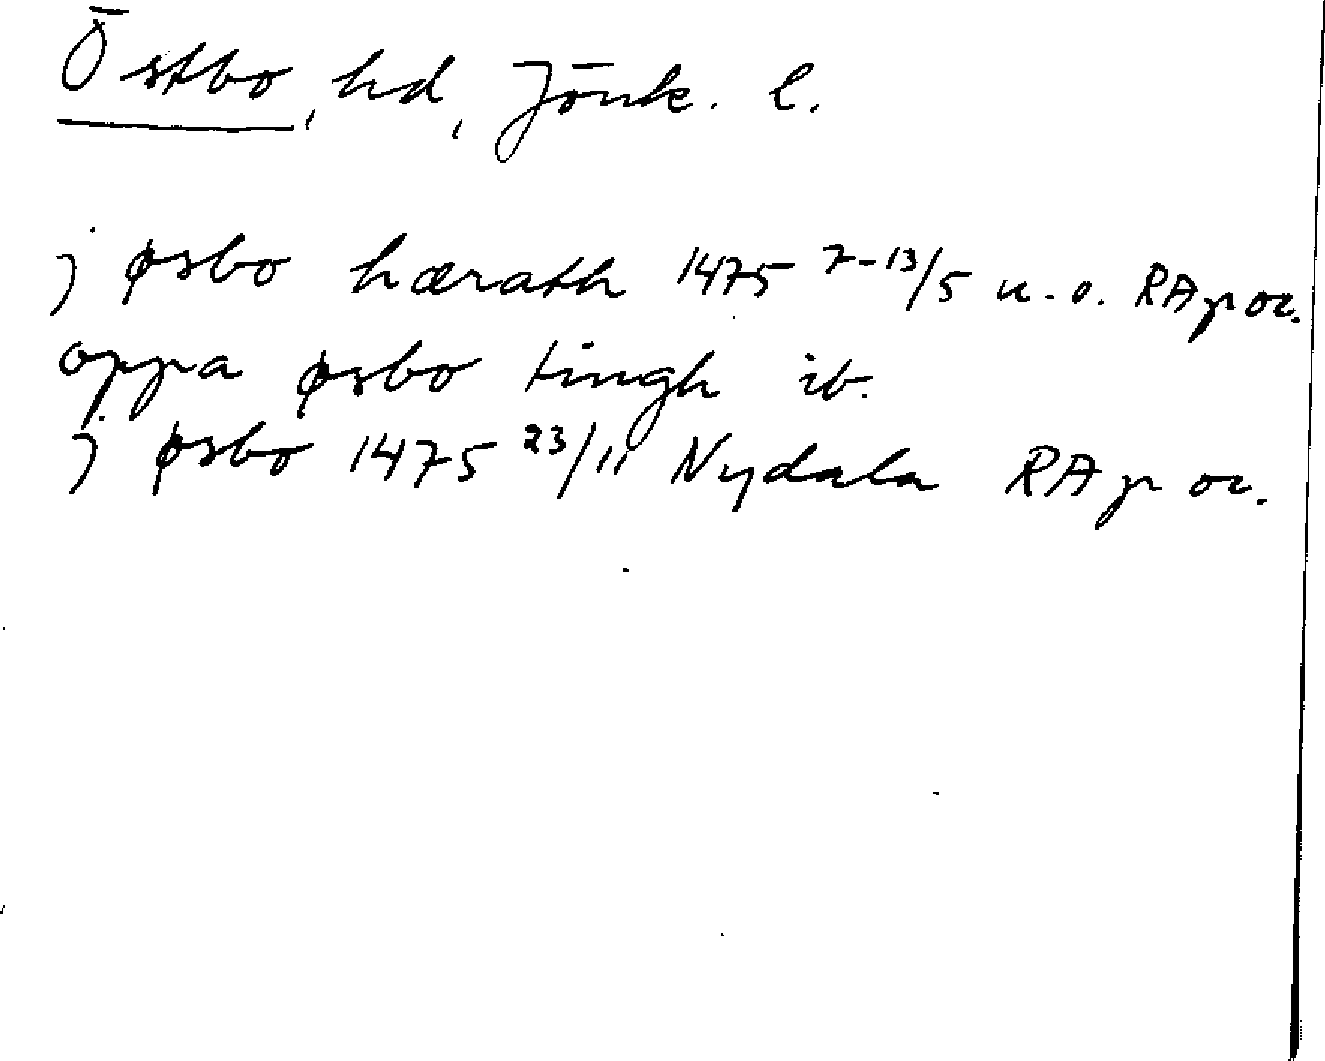 Östbo, hd, Jönk. l.
j øsbo hærath 1475 7-13/5 u.o. RAp or.
oppa øsbo tingh ib.
j øsbo 1475 23/11 Nydala RAp or.